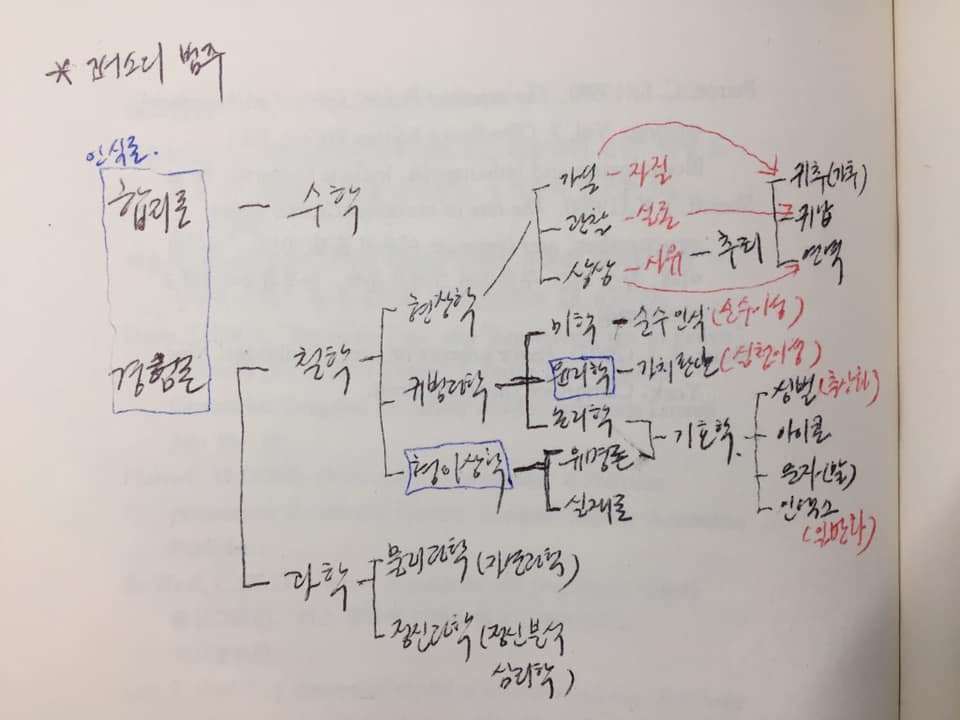 * 퍼스의 범주
인식론.
합리론 - 수학
가설 - 자질
귀추(가추)
관찰 - 실존
귀납
상상 - 사유 - 추리
연역
현상학
미학 - 순수인식 (순수이성)
경험론
철학
규범과학
윤리학 - 가치판단 (실천이성)
논리학
기호학
심벌 (추상화)
아이콘
형이상학
유명론
문자(말)
실재론
인덱스
(일반화)
과학
물리과학 (자연과학)
정신과학 (정신분석
심리학)